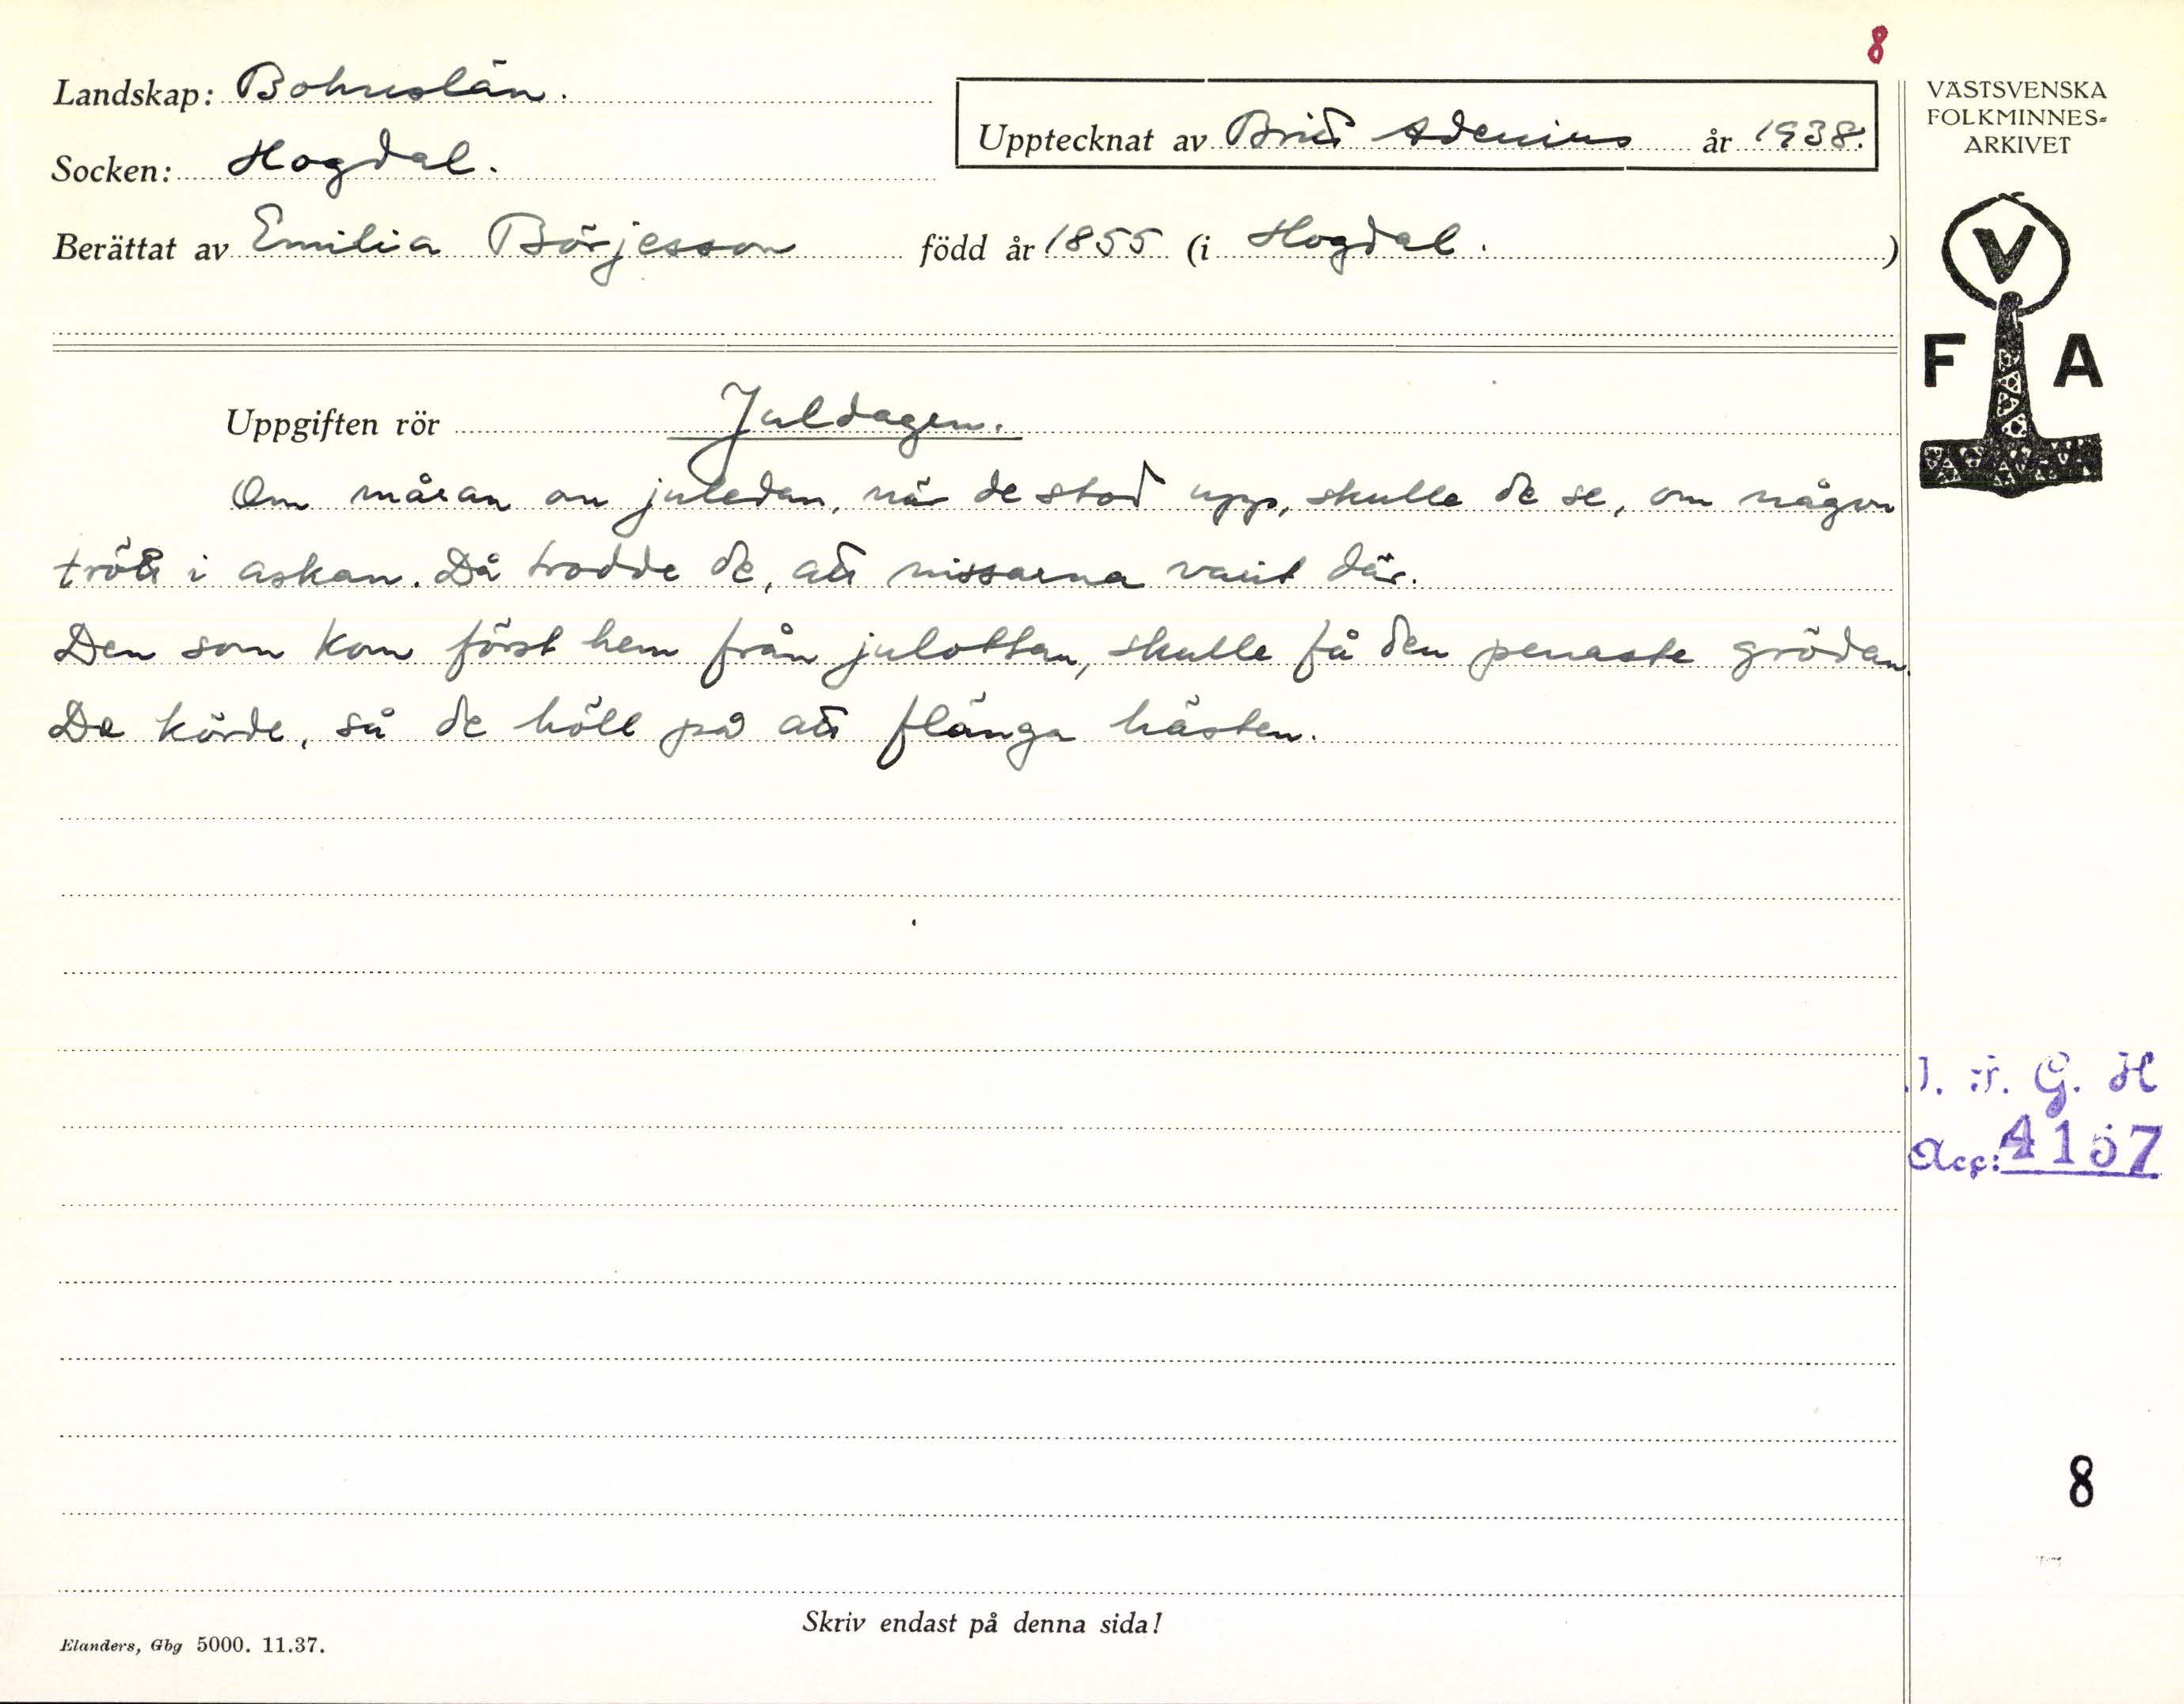 8
Landskap: Bohuslän.
Upptecknat av Britt Adenius år 1938.
Socken: Hogdal.
Berättat av Emilia Börjesson född år 1855 (i Hogdal.)
VÄSTSVENSKA
FOLKMINNES-
ARKIVET
V
F A
Uppgiften rör Juldagen.
Om måran on juledan, när de stod upp, skulle de se, om någon
trött i askan. Då trodde de, att nissarna varit där.
Den som kom först hem från julottan, skulle få den penaste grödan.
De körde, så de höll på att flänga hästen.
G. H
Acc: 4157
8
Skriv endast på denna sida!
Elanders, Gbg 5000. 11.37.